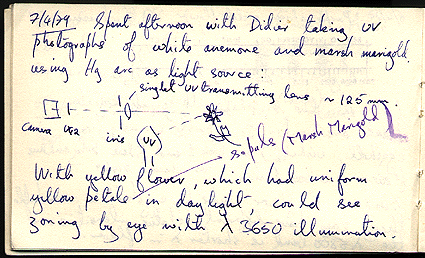 7/4/79 Spent afternoon with Didier taking UV
photographs of white anemone and marsh marigold.
using Hg arc as light source:
singlet UV transmitting lens ~ 125 mm.
camera UG2 iris UV
sepals (Marsh Marigold)
With yellow flower, which had uniform
yellow petals in daylight, could see
zoning by eye with λ 3650 illumination.